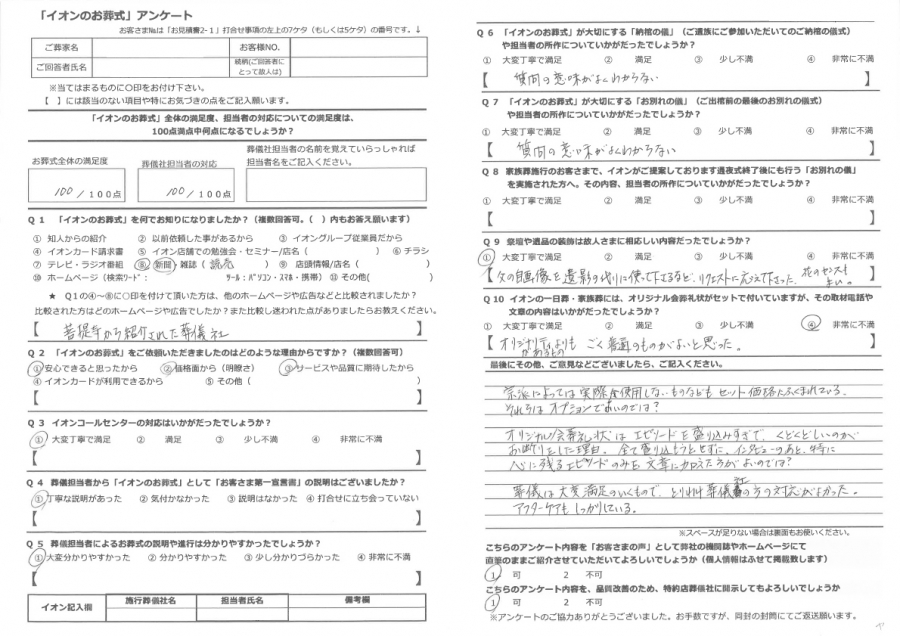 「イオンのお葬式」アンケート
お客さま№は「お見積書2-1」打合せ事項の左上の7ケタ（もしくは5ケタ）の番号です。↓
ご葬家名
お客様NO.
ご回答者氏名
続柄(ご回答者にとって故人は)
※当てはまるものに○印をお付け下さい。
【　】には該当のない項目や特にお気づきの点をご記入願います。
「イオンのお葬式」全体の満足度、担当者の対応についての満足度は、
100点満点中何点になるでしょうか？
お葬式全体の満足度
葬儀社担当者の対応
葬儀社担当者の名前を覚えていらっしゃれば
担当者名をご記入ください。
100 / 100点
100 / 100点
Q 1　「イオンのお葬式」を何でお知りになりましたか？（複数回答可。(　)内もお答え願います）
① 知人からの紹介　② 以前依頼した事があるから　③ イオングループ従業員だから
④ イオンカード請求書　⑤ イオン店舗での勉強会・セミナー/店名（　）　⑥ チラシ
⑦ テレビ・ラジオ番組　⑧ 新聞・雑誌（ 読売 ）　⑨ 店頭情報/店名（　）
⑩ ホームページ（検索ワード：　ツール：パソコン・スマホ・携帯）　⑪ その他（　）
★　Q1の④～⑧に○印を付けて頂いた方は、他のホームページや広告などと比較されましたか？
比較された方はどのホームページや広告でしたか？また比較し迷われた点がありましたらお教えください。
【 菩提寺から紹介された葬儀社 】
Q 2　「イオンのお葬式」をご依頼いただきましたのはどのような理由からですか？（複数回答可）
①安心できると思ったから　②価格面から（明瞭さ）　③サービスや品質に期待したから
④イオンカードが利用できるから　⑤ その他（　）
【　】
Q 3　イオンコールセンターの対応はいかがだったでしょうか？
① 大変丁寧で満足　② 満足　③ 少し不満　④ 非常に不満
【　】
Q 4　葬儀担当者から「イオンのお葬式」として「お客さま第一宣言書」の説明はございましたか？
①丁寧な説明があった　② 気付かなかった　③ 説明はなかった　④ 打合せに立ち会っていない
【　】
Q 5　葬儀担当者によるお葬式の説明や進行は分かりやすかったでしょうか？
①大変分かりやすかった　② 分かりやすかった　③ 少し分かりづらかった　④ 非常に不満
【　】
イオン記入欄
施行葬儀社名
担当者氏名
備考欄
Q 6　「イオンのお葬式」が大切にする「納棺の儀」（ご遺族にご参加いただいてのご納棺の儀式）
や担当者の所作についていかがだったでしょうか？
① 大変丁寧で満足　② 満足　③ 少し不満　④ 非常に不満
【 質問の意味がよくわからない 】
Q 7　「イオンのお葬式」が大切にする「お別れの儀」（ご出棺前の最後のお別れの儀式）
や担当者の所作についていかがだったでしょうか？
① 大変丁寧で満足　② 満足　③ 少し不満　④ 非常に不満
【 質問の意味がよくわからない 】
Q 8　家族葬施行のお客さまで、イオンがご提案しております通夜式終了後にも行う「お別れの儀」
を実施された方へ。その内容、担当者の所作についていかがだったでしょうか？
① 大変丁寧で満足　② 満足　③ 少し不満　④ 非常に不満
【　】
Q 9　祭壇や遺品の装飾は故人さまに相応しい内容だったでしょうか？
① 大変丁寧で満足　② 満足　③ 少し不満　④ 非常に不満
【 父の自画像を遺影の代りに使って下さるなど、リクエストに応えて下さった。花のセンスも
Q 10　イオンの一日葬・家族葬には、オリジナル会葬礼状がセットで付いていますが、その取材電話や
文章の内容はいかがだったでしょうか？
① 大変丁寧で満足　② 満足　③ 少し不満　④ 非常に不満
【 オリジナリティよりも ごく普通のものがよいと思った。 】
最後にその他、ご意見などございましたら、ご記入ください。
宗派によっては実際全使用しないものなどもセット価格にふくまれている。
それらはオプションでよいのでは？
オリジナル会葬礼状はエピソードを盛り込みすぎで、くどくどしいのが
お断りをした理由。全て盛り込もうとせずに、インタビューのあと、特に
心に残るエピソードのみを文章に加えた方がよいのでは？
葬儀は大変満足のいくもので、とりわけ葬儀社の方の対応がよかった。
アフターケアもしっかりしている。
※スペースが足りない場合は裏面もお使いください。
こちらのアンケート内容を「お客さまの声」として弊社の機関誌やホームページにて
直筆のままご紹介させていただいてよろしいでしょうか（個人情報はふせて掲載致します）
1　可　2　不可
こちらのアンケート内容を、品質改善のため、特約店葬儀社に開示してもよろしいでしょうか
1　可　2　不可
※アンケートのご協力ありがとうございました。お手数ですが、同封の封筒にてご返送願います。